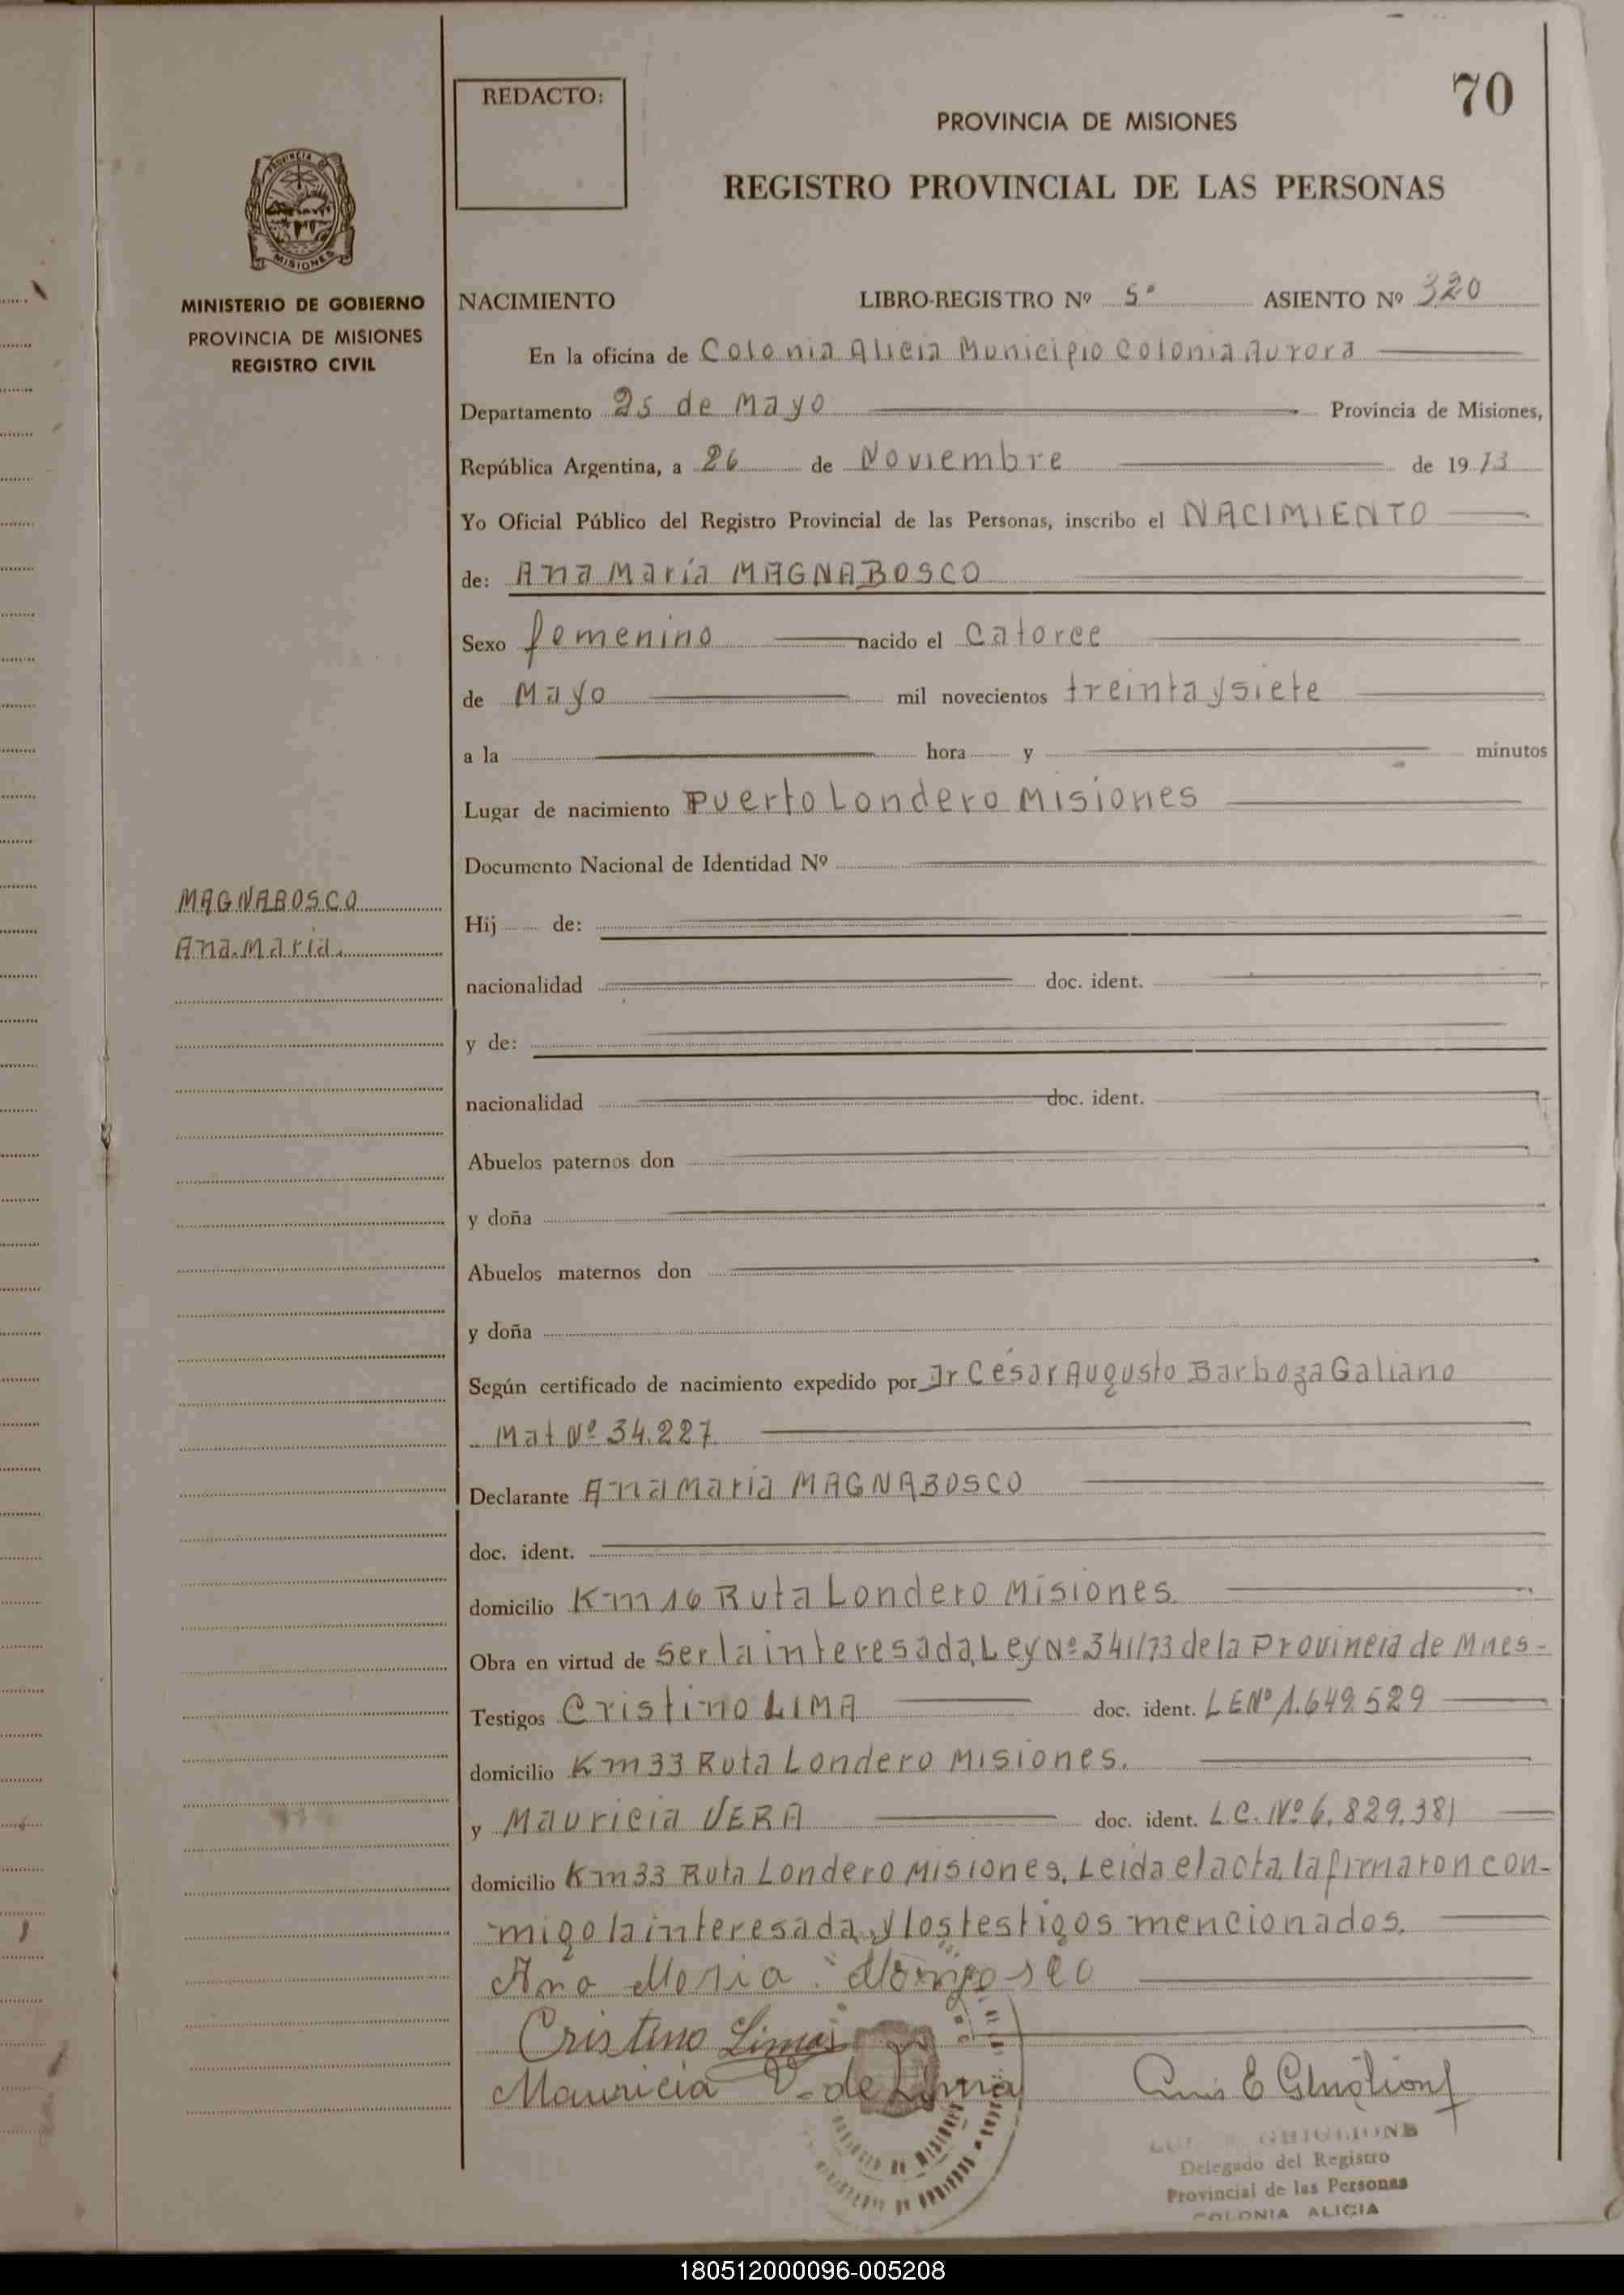 70
REDACTO:
PROVINCIA DE MISIONES
REGISTRO PROVINCIAL DE LAS PERSONAS
PROVINCIA DE
MISIONES
MINISTERIO DE GOBIERNO
PROVINCIA DE MISIONES
REGISTRO CIVIL
NACIMIENTO LIBRO-REGISTRO Nº 5° ASIENTO Nº 320
En la oficina de Colonia Alicia Municipio Colonia Aurora
Departamento 25 de Mayo Provincia de Misiones,
República Argentina, a 26 de Noviembre de 1973
Yo Oficial Público del Registro Provincial de las Personas, inscribo el NACIMIENTO
de: Ana Maria MAGNABOSCO
Sexo femenino nacido el Catorce
de Mayo mil novecientos treinta y siete
a la hora y minutos
Lugar de nacimiento Puerto Londero Misiones
Documento Nacional de Identidad Nº
MAGNABOSCO
Ana Maria.
Hij de:
nacionalidad doc. ident.
y de:
nacionalidad doc. ident.
Abuelos paternos don
y doña
Abuelos maternos don
y doña
Según certificado de nacimiento expedido por Dr César Augusto Barboza Galiano
Mat Nº 34.227
Declarante Ana Maria MAGNABOSCO
doc. ident.
domicilio Km 16 Ruta Londero Misiones.
Obra en virtud de Ser la interesada, Ley Nº 341/73 de la Provincia de Mnes-
Testigos Cristino LIMA doc. ident. LE Nº 1.649.529
domicilio Km 33 Ruta Londero Misiones.
y Mauricia VERA doc. ident. L.C. Nº 6.829.381
domicilio Km 33 Ruta Londero Misiones. Leida el acta, la firmaron con-
migo la interesada y los testigos mencionados.
Ana Maria
Cristino Lima
Mauricia V. de Lima
Luis E Ghiglione
GHIGLIONE
Delegado del Registro
Provincial de las Personas
COLONIA ALICIA
180512000096-005208